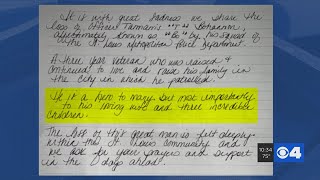 It is with great sadness we share the
loss of Officer Tamarris "T" Bohannon,
affectionately known as "Bo" by his squad of
the St. Louis Metropolitan Police Department.
A three year veteran who was raised &
continued to live and raise his family in
the city in which he patrolled.
He is a hero to many but most importantly
to his loving wife and three incredible
children.
The loss of this great man is felt deeply
within this St. Louis community and
we ask for your prayers and support
in the days ahead.
10:34
75°
4